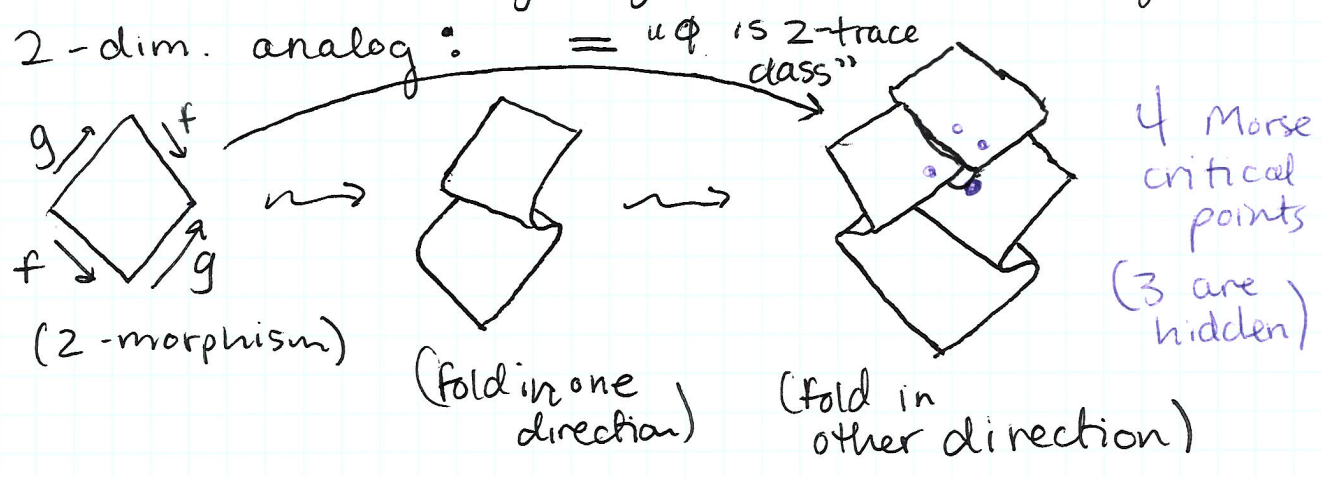 2-dim. analog: = "φ is 2-trace
class"
g f
f g
(2-morphism)
(fold in one
direction)
(fold in
other direction)
4 Morse
critical
points
(3 are
hidden)